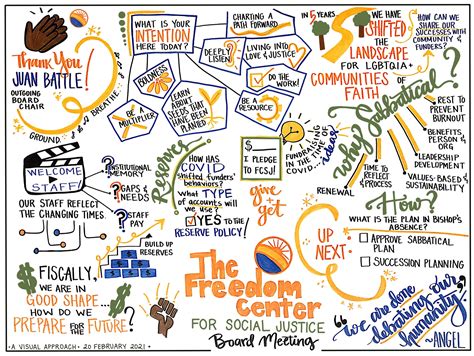 Thank You
JUAN BATTLE!
OUTGOING
BOARD
CHAIR
GROUND
BREATHE
WHAT IS YOUR
INTENTION
HERE TODAY?
CHARTING A
PATH FORWARD
DEEPLY
LISTEN
LIVING INTO
LOVE & JUSTICE
DO THE WORK!
BOLDNESS
BE A
MULTIPLIER
LEARN
ABOUT
SEEDS THAT
HAVE BEEN
PLANTED
BE A
RESOURCE
IN 5
YEARS
WE HAVE
SHIFTED
THE
LANDSCAPE
FOR LGBTQIA+
COMMUNITIES
OF FAITH
HOW CAN WE
SHARE OUR
SUCCESSES WITH
COMMUNITY &
FUNDERS?
WELCOME
STAFF
OUR STAFF REFLECT
THE CHANGING TIMES.
? INSTITUTIONAL
MEMORY
? GAPS &
NEEDS
? STAFF
PAY
Reserves
HOW HAS
COVID
SHIFTED FUNDERS'
BEHAVIORS?
WHAT TYPE
OF ACCOUNTS WILL
WE USE?
YES TO THE
RESERVE POLICY!
BUILD UP
RESERVES
$
I PLEDGE
TO FCSJ!
give
get
FUNDRAISING
IN THE
TIME OF
COVID...
ideas!
Why Sabbatical?
REST TO
PREVENT
BURNOUT
BENEFITS
PERSON &
ORG
LEADERSHIP
DEVELOPMENT
VALUES-BASED &
SUSTAINABILITY
TIME TO
REFLECT &
PROCESS
RENEWAL
How?
WHAT IS THE PLAN IN BISHOP'S
ABSENCE?
APPROVE SABBATICAL
PLAN
SUCCESSION PLANNING
UP
NEXT
$ FISCALLY,
WE ARE IN
GOOD SHAPE...
HOW DO WE
PREPARE FOR THE
FUTURE?
The
Freedom
Center
FOR SOCIAL JUSTICE
Board Meeting
"we are done
debating our
humanity"
~ANGEL
A VISUAL APPROACH • 20 FEBRUARY 2021